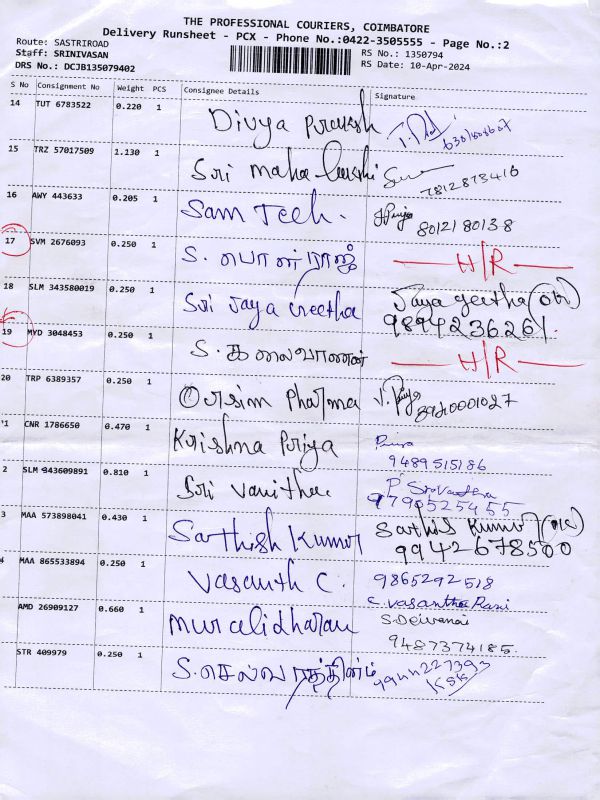 THE PROFESSIONAL COURIERS, COIMBATORE
Delivery Runsheet - PCX - Phone No.:0422-3505555 - Page No.:2
Route: SASTRIROAD
Staff: SRINIVASAN
DRS No.: DCJB135079402
RS No.: 1350794
RS Date: 10-Apr-2024
S No Consignment No Weight PCS Consignee Details Signature
14 TUT 6783522 0.220 1 Divya Prakash
15 TRZ 57017509 1.130 1 Sri maha lakshi 7812873416
16 AWY 443633 0.205 1 Sam Tech. Priya 8012180138
17 SVM 2676093 0.250 1 S. பொன்ராஜ் H/R
18 SLM 343580019 0.250 1 Sri Jaya Geetha Jaya geetha 9894236261
19 MYD 3048453 0.250 1 S. கலைவாணன் H/R
20 TRP 6389357 0.250 1 Orsim Pharma V. Priya 8940001027
21 CNR 1786650 0.470 1 Krishna Priya Priya 9489515186
2 SLM 343609891 0.810 1 Sri Vanitha P 9790525455
3 MAA 573898041 0.430 1 Sathish Kumar Sathis Kumar 9942678500
4 MAA 865533894 0.250 1 Vasanth C. 9865292518
C. Vasantha Rani
AMD 26909127 0.660 1 Muralidharan S Deivanai
9487374185
STR 409979 0.250 1 S. செல்வரத்தினம் 9944227393
KSK